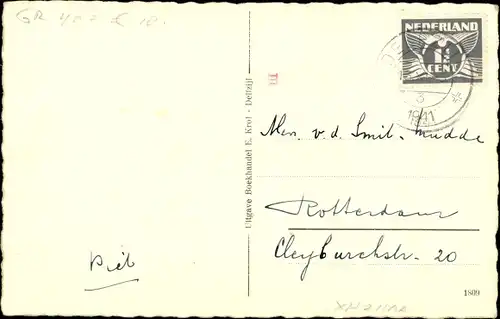 NEDERLAND
1½
CENT
3
1941
III
Uitgave Boekhandel E. Krol - Delfzijl
Mevr. v. d. Smit-Mudde
Rotterdam
Cleyburchstr. 20
Piet
1809